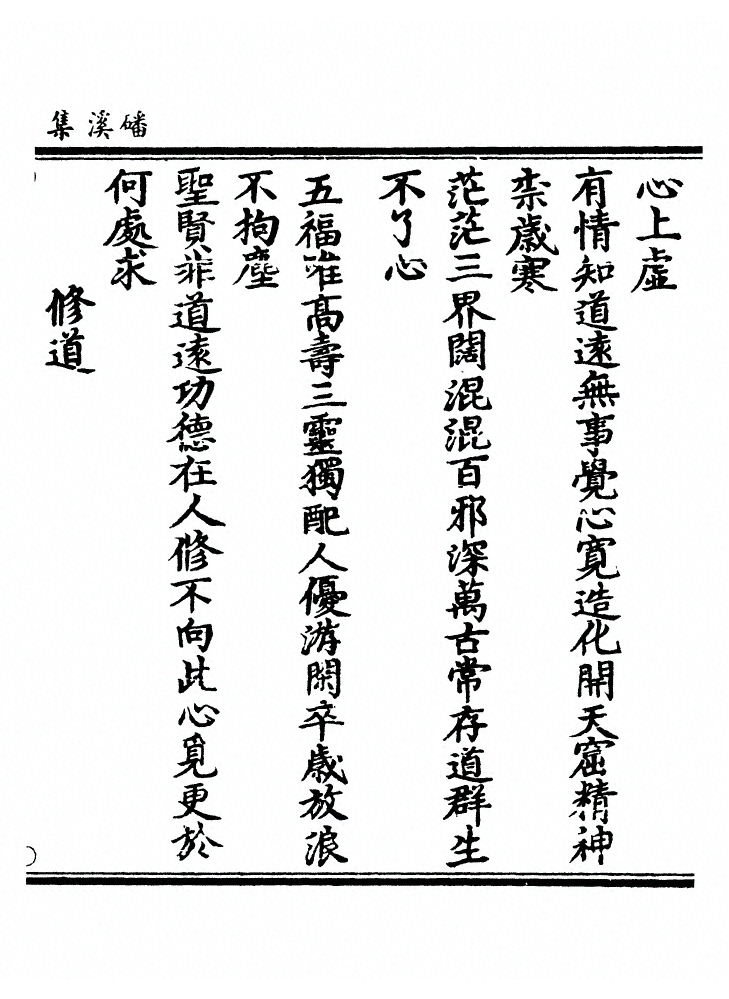 磻溪集
心上虛
有情知道遠無事覺心寬造化開天窟精神
柰歲寒
茫茫三界闊混混百邪深萬古常存道群生
不了心
五福唯高壽三靈獨配人優游閑卒歲放浪
不拘塵
聖賢非道遠功德在人修不向此心覓更於
何處求
修道